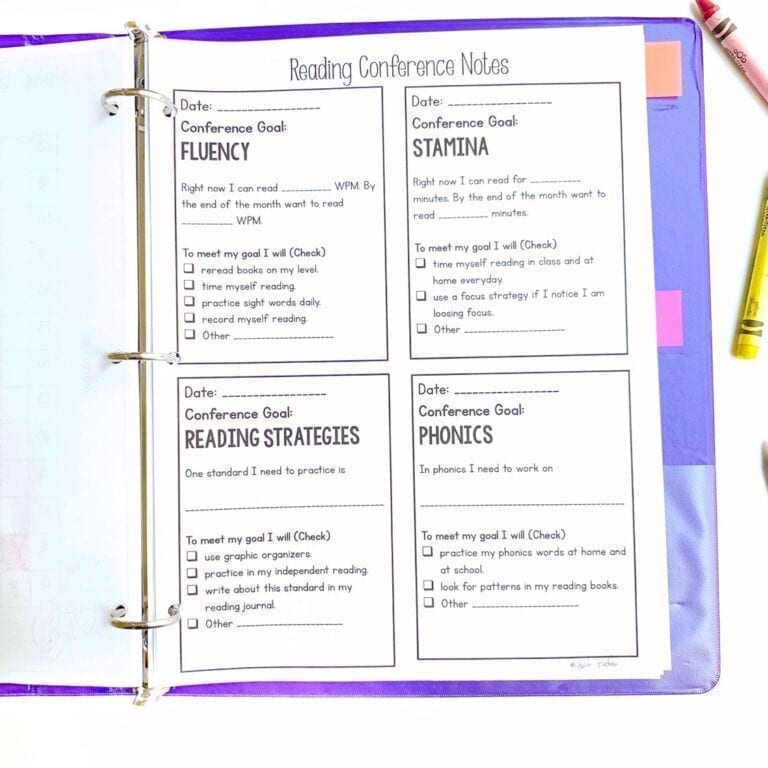 Reading Conference Notes
Date: _________________
Conference Goal:
FLUENCY
Right now I can read __________ WPM. By
the end of the month want to read
__________ WPM.
To meet my goal I will (Check)
☐ reread books on my level.
☐ time myself reading.
☐ practice sight words daily.
☐ record myself reading.
☐ Other ____________________
Date: _________________
Conference Goal:
STAMINA
Right now I can read for __________
minutes. By the end of the month want to
read __________ minutes.
To meet my goal I will (Check)
☐ time myself reading in class and at
home everyday.
☐ use a focus strategy if I notice I am
loosing focus.
☐ Other ____________________
Date: _________________
Conference Goal:
READING STRATEGIES
One standard I need to practice is
________________________________________
To meet my goal I will (Check)
☐ use graphic organizers.
☐ practice in my independent reading.
☐ write about this standard in my
reading journal.
☐ Other ____________________
Date: _________________
Conference Goal:
PHONICS
In phonics I need to work on
________________________________________
To meet my goal I will (Check)
☐ practice my phonics words at home and
at school.
☐ look for patterns in my reading books.
☐ Other ____________________